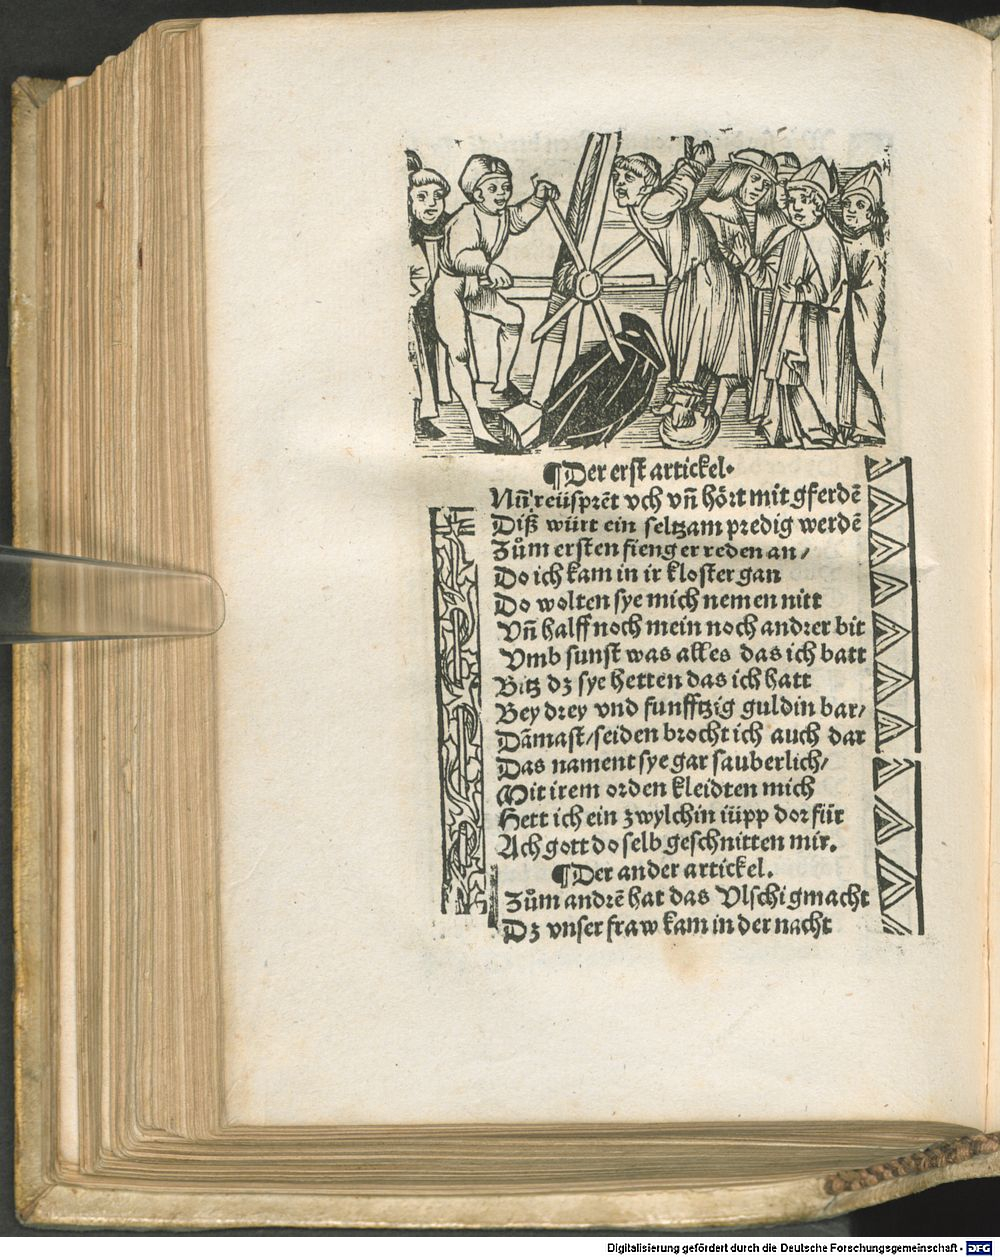 ¶Der erst artickel.
Nũ reüsprẽt vch vñ hört mit gferdẽ
Diß würt ein seltzam predig werdẽ
Zům ersten fieng er reden an/
Do ich kam in ir kloster gan
Do wolten sye mich nemen nitt
Vñ halff noch mein noch andrer bit
Vmb sunst was alles das ich batt
Bitz dz sye hetten das ich hatt
Bey drey vnd funfftzig guldin bar/
Dãmast/seiden brocht ich auch dar
Das nament sye gar sauberlich/
Mit irem orden kleidten mich
Hett ich ein zwylchin iüpp dorfür
Ach gott do selb geschnitten mir.
¶Der ander artickel.
Zům andrẽ hat das Vlschi gmacht
Dz vnser fraw kam in der nacht
Digitalisierung gefördert durch die Deutsche Forschungsgemeinschaft - DFG